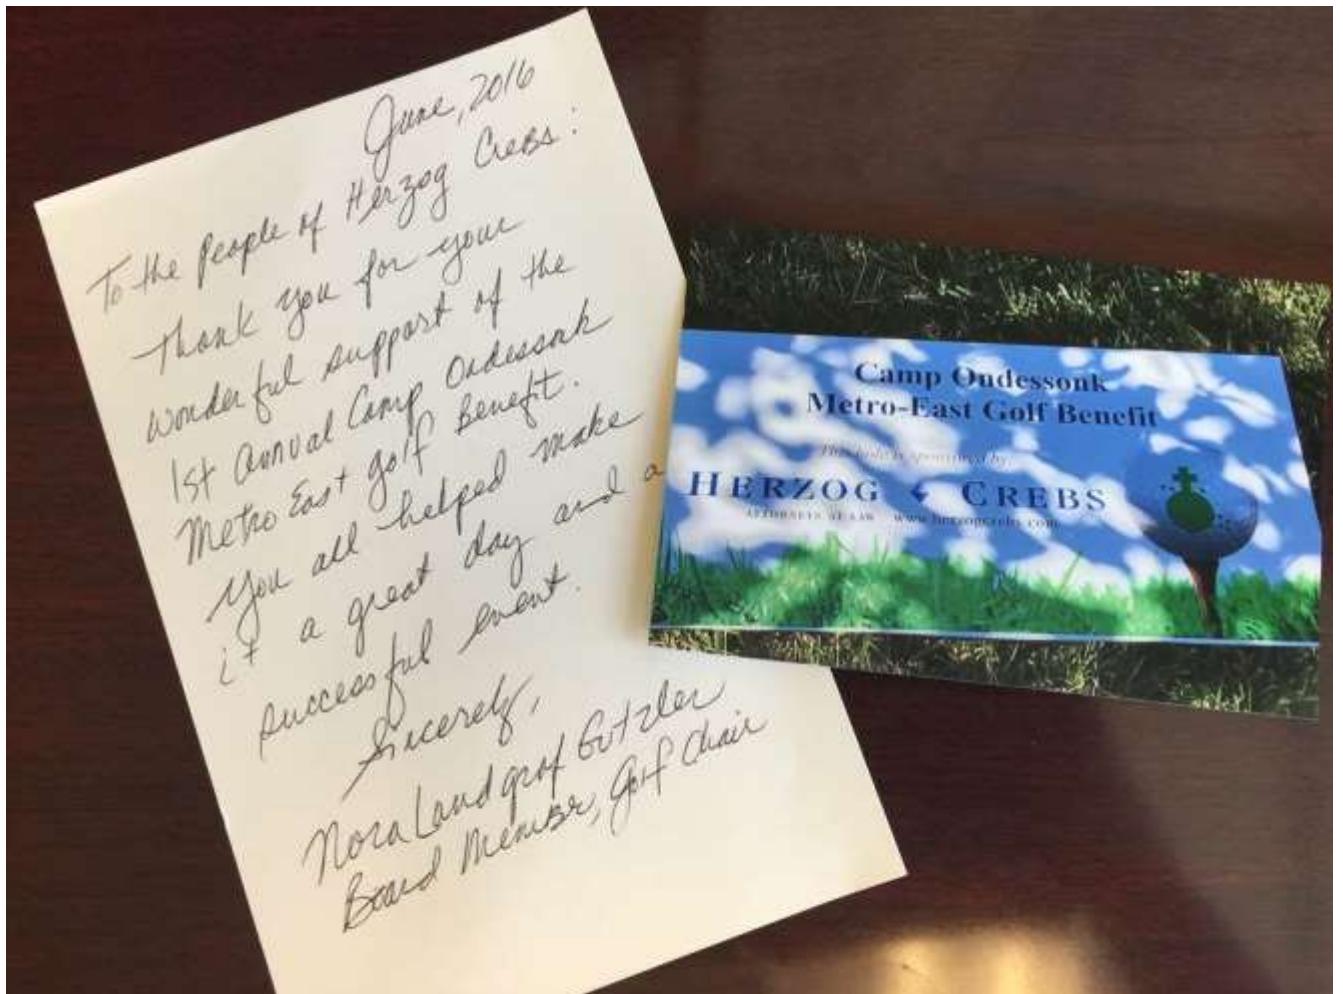 June, 2016
To the People of Herzog Crebs:
Thank you for your
wonderful support of the
1st Annual Camp Ondessonk
Metro East Golf Benefit.
You all helped make
it a great day and a
successful event.
Sincerely,
Nora Landgraf Gutzler
Board Member, Golf Chair
Camp Ondessonk
Metro-East Golf Benefit
This hole is sponsored by:
HERZOG CREBS
ATTORNEYS AT LAW www.herzogcrebs.com